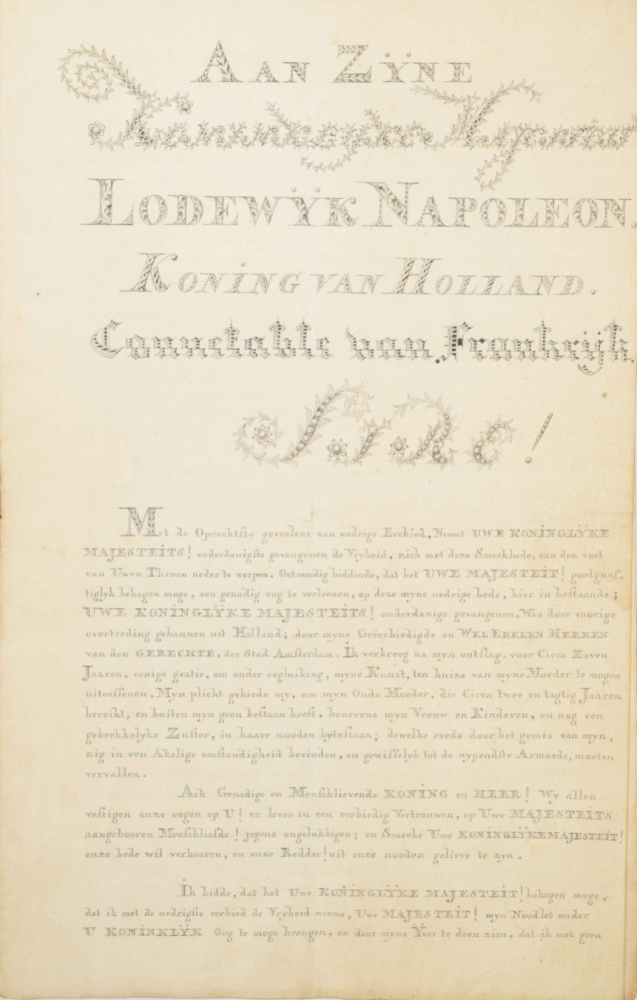 AAN ZŸNE
Koninklyke Hoogheid
LODEWŸK NAPOLEON.
KONING VAN HOLLAND.
Connetable van Frankrijk.
SIRE!
Met de Oprechtste gevoelens van nedrige Eerbied, Neemt UWE KONINGLŸKE
MAJESTEITS! onderdanigste gevangenen de Vryheid, zich met deze Smeekbede, aan den voet
van Uwen Throon neder te werpen. Ootmoedig biddende, dat het UWE MAJESTEIT! goedguns,
tiglyk behagen moge, een genadig oog te verleenen, op deze myne nedrige bede, hier in bestaande;
UWE KONINGLŸKE MAJESTEITS! onderdanige gevangenen, Was door voorige
overtreding gebannen uit Holland; door myne Geëerbiedigde en WEL EDELEN HEEREN
van den GERECHTE, der Stad Amsterdam. Ik verkreeg na myn ontslag, voor Circa Zeven
Jaaren, eenige gratie, om onder oogluiking, myne Kunst, ten huize van myne Moeder te mogen
uitoeffenen. Myn plicht gebiede my, om myn Oude Moeder, die Circa twee en tagtig Jaaren
bereikt, en buiten myn geen bestaan heeft, benevens myn Vrouw en Kinderen, en nog een
gebrekkelyke Zuster, in haare nooden bytestaan; dewelke reeds door het gemis van myn,
zig in een Akelige omstandigheid bevinden, en gewisselyk tot de nypendste Armoede, moeten
vervallen.
Ach Genadige en Menschlievende KONING en HEER! Wy allen
vestigen onze oogen op U! en leven in een eerbiedig Vertrouwen, op Uwe MAJESTEITS
aangebooren Menschliefde! jegens ongelukkigen; en Smeeke Uwe KONINGLŸKE MAJESTEIT!
onze bede wil verhooren, en onze Redder! uit onze nooden gelieve te zyn.
Ik bidde, dat het Uwe KONINGLŸKE MAJESTEIT! behagen moge,
dat ik met de nedrigste eerbied de Vryheid neeme, Uwe MAJESTEIT! myn Noodlot onder
U KONINKLŸK Oog te moge brengen, en door myne Yver te doen zien, dat ik met geen